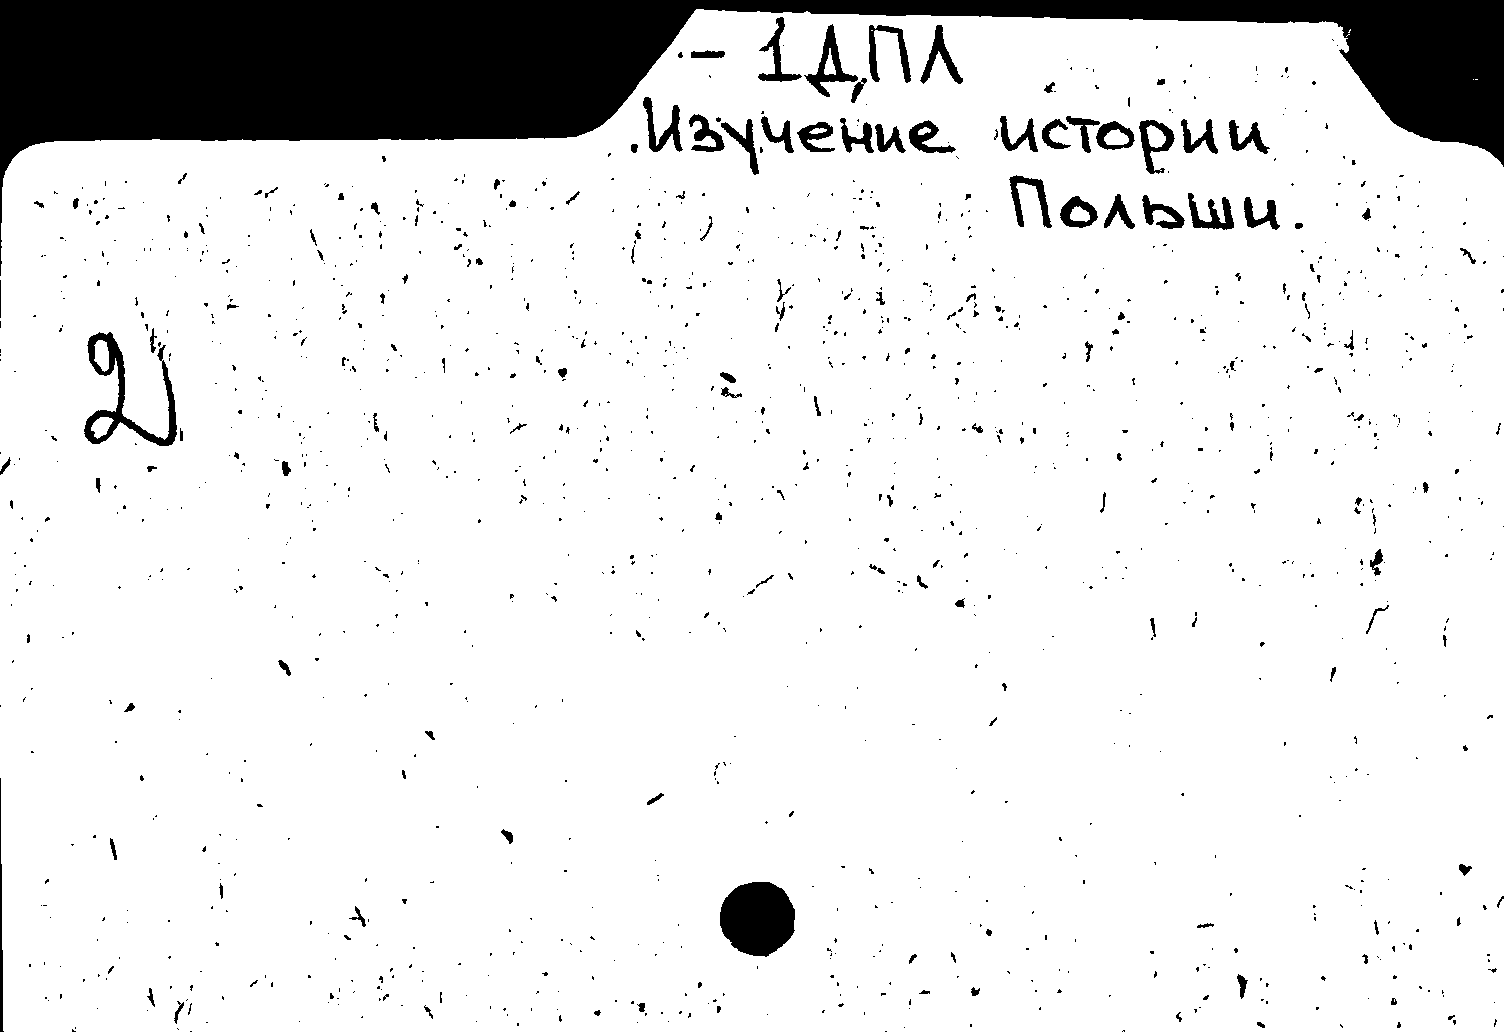 - 1Д,ПЛ
Изучение истории
Польши.
2